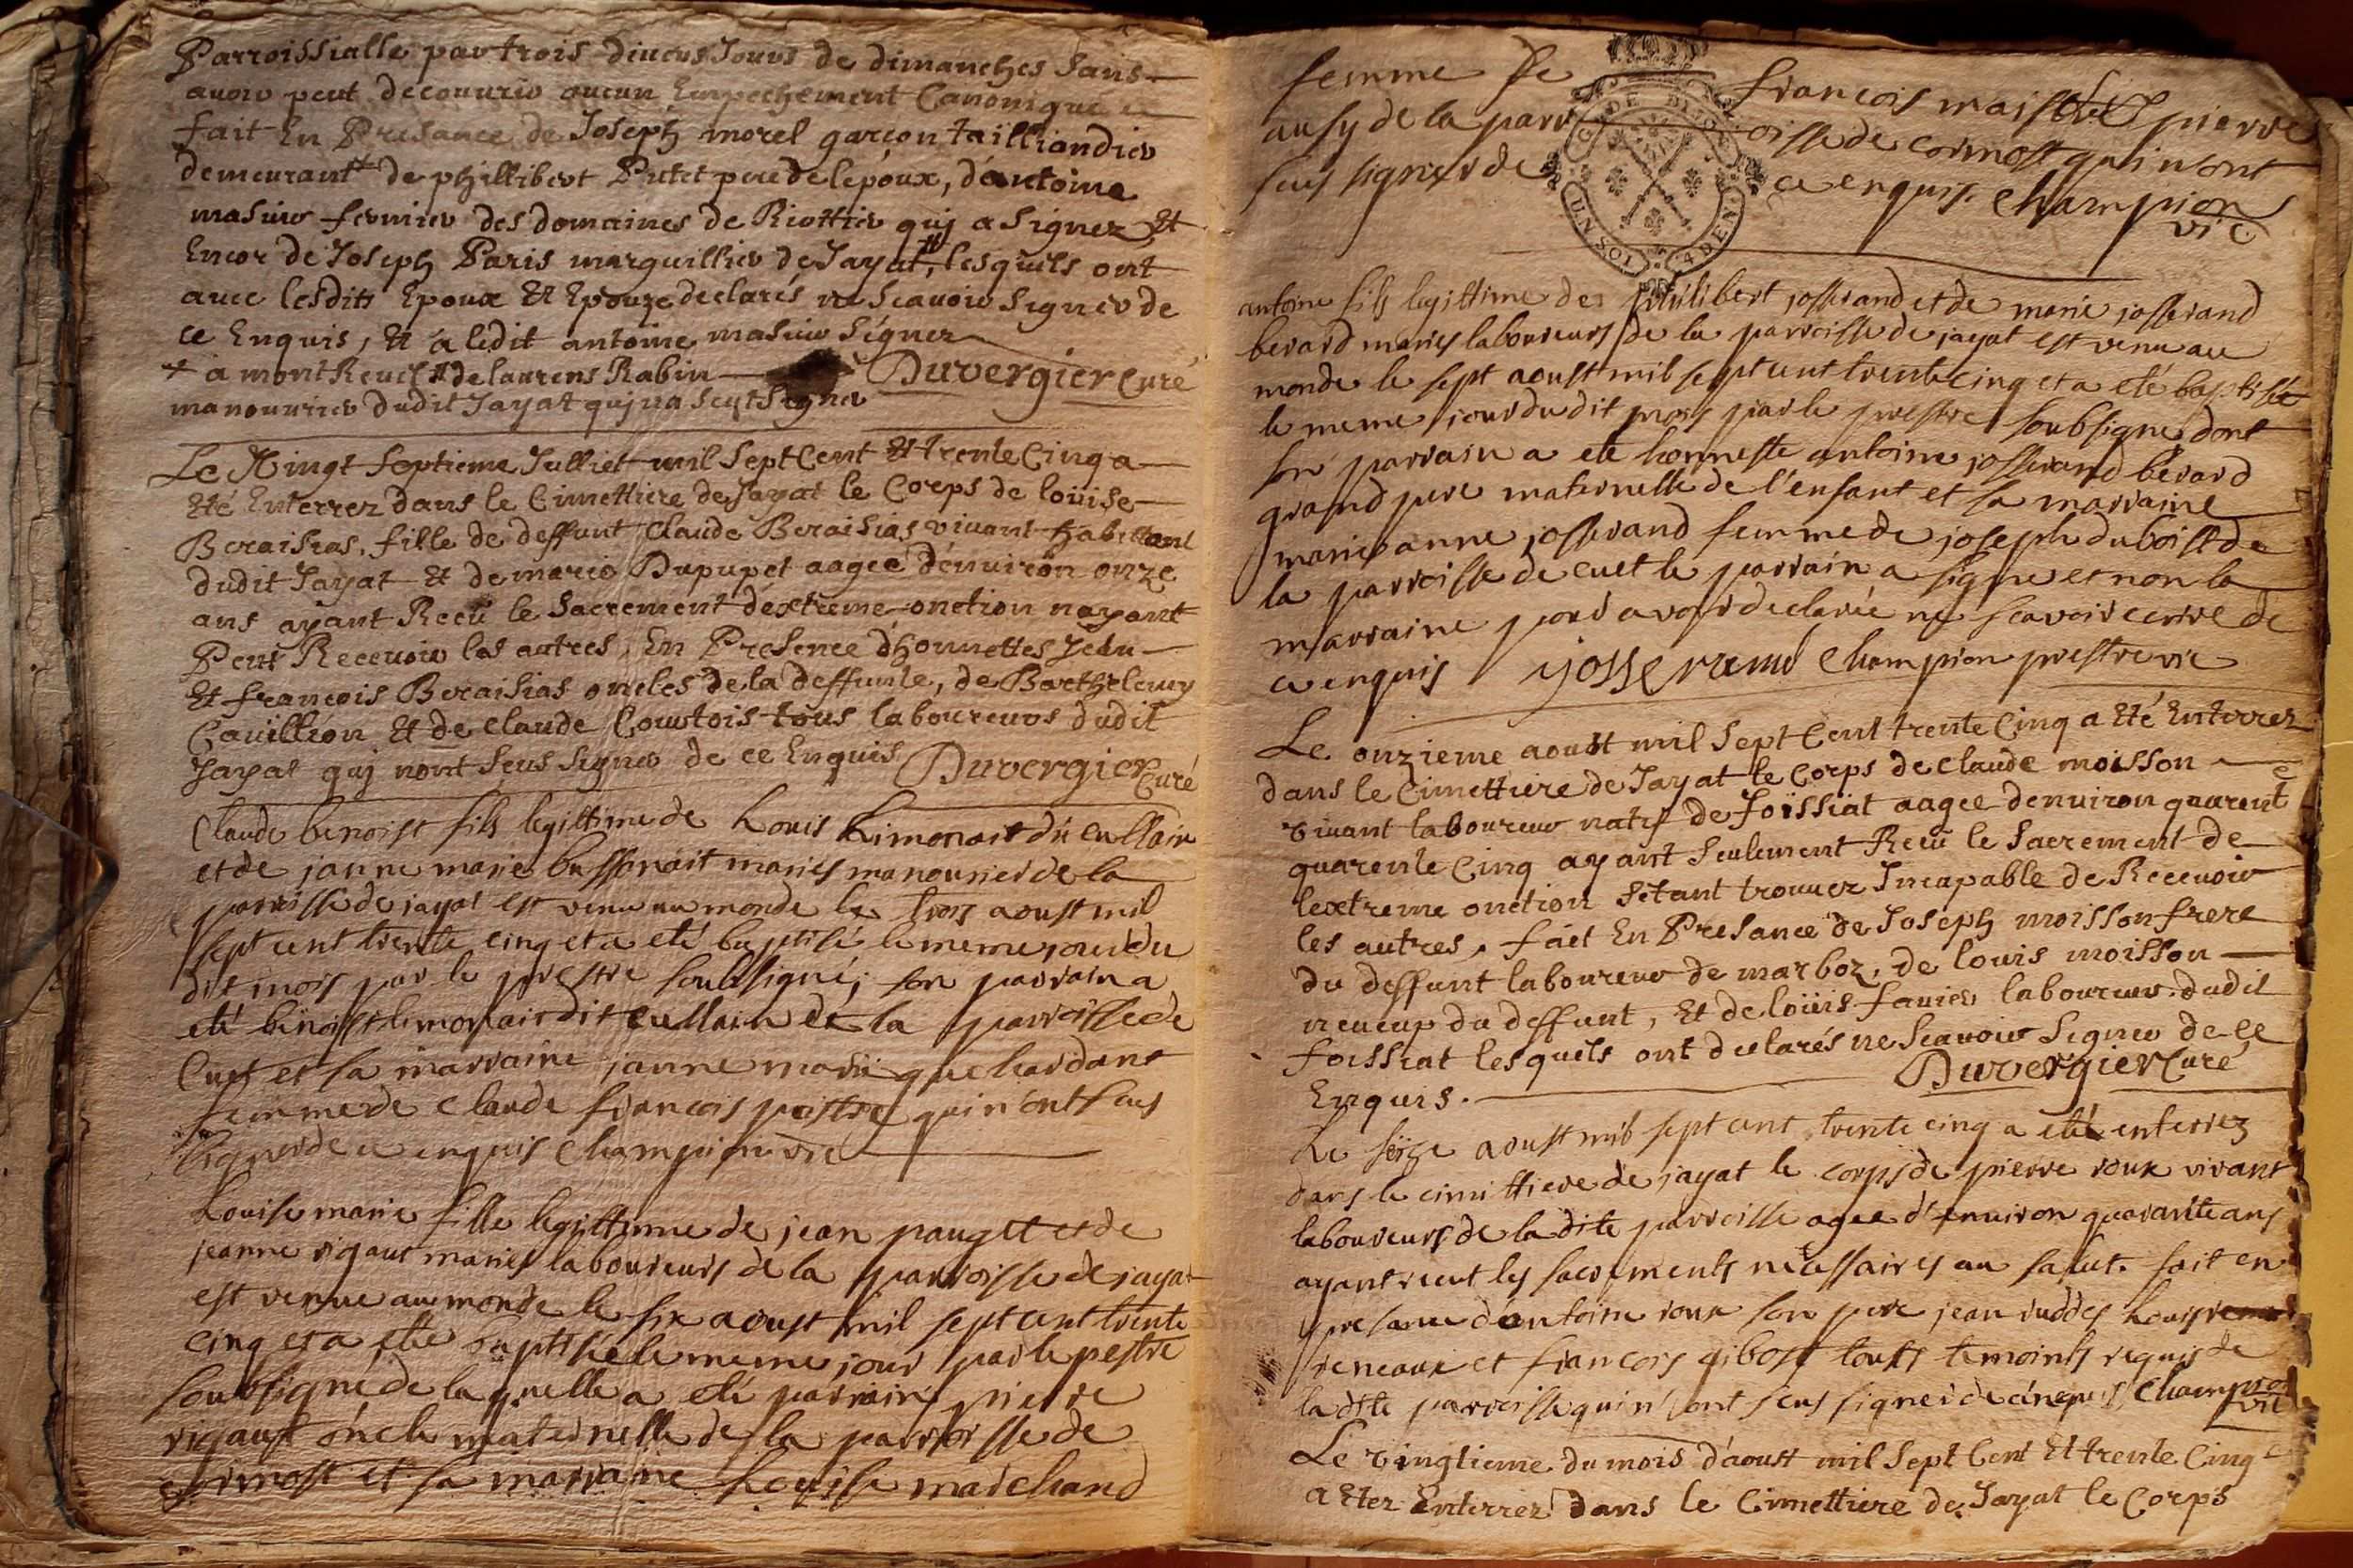 Parroissialle par trois diuers Jours de dimanches Sans
auoir peut decouurir aucun Empechement Canonique
fait En Presance de Joseph morel garçon tailliandier
demeurant de phillibert Putet pere de lepoux, dantoine
masuir fermier des domaines de Riottier quj a Signez, Et
Encor de Joseph Paris marguillier de Jayat, lesquels ont
auec lesdits Epoux Et Epouze declarés ne Scauoir Signer de
ce Enquis, Et a ledit antoine masuir Signez
+ a montReuel # de laurens Rabin Duvergier Curé
manouurier dudit Jayat quj na Scut Signer
Le Vingt Septieme Julliet mil Sept Cent Et trente Cinq a
Eté Enterrez dans le Cimettiere de Jayat le Corps de loüise
Beraisias, fille de deffunt Claude Beraisias viuant habittant
dudit Jayat Et de marie Dupupet aageé dénuiron onze
ans ayant Receü le Sacrement dextreme-onction nayant
Peut Receuoir les autres, En Presence dhonnettes Jean
Et françois Beraisias oncles de la deffunte, de Barthelemy
Cauillion Et de Claude Courtois tous laboureurs dudit
Jayat quj nont Seus Signer de ce Enquis. Duvergier Curé
Claude benoist fils legittime de Louis Limonair dit Cullain
et de janne marie bussonait mariés manourier de la
parroisse de jayat est venu au monde le trois aoust mil
sept cent trente cinq et a eté baptisé le meme jour du
dit mois par le prestre soubsigné; son parrain a
eté benoist limonair dit Cullain de la parroisse de
Cuet et sa marraine janne marie quehardant
femme de Claude françois paistre qui nont seus
signer de ce enquis Champion vic
Louise marie fille legittime de jean pauget et de
jeanne rigaut mariés laboureurs de la parroisse de jayat
est venue au monde le six aoust mil sept cent trente
cinq et a eté baptisée le meme jour par le pestre
soubsigné de laquelle a eté parrain pierre
rigaust oncle maternelle de la parroisse de
cormost et sa marraine Louise marchand
femme de françois maistre pierre
ausy de la parroisse de cormost qui nont
seus signer de ce enquis. Champion
vic
antoine fils legittime de philibert josserand et de marie josserand
berard mariés laboureurs de la parroisse de jayat est venu au
monde le sept aoust mil sept cent trente cinq et a eté baptisée
le meme jour du dit mois par le prestre soubsigne dont
son parrain a eté honneste antoine josserand berard
grand pere maternelle de l'enfant et sa marraine
marie anne josserand femme de joseph duboist de
la parroisse de cuet le parrain a signé et non la
marraine pour avoir declarée ne scavoir ecrire de
ce enquis josserand Champion prestre vic
Le onzieme aoust mil Sept Cent trente Cinq a Eté Enterrez
dans le Cimettiere de Jayat le Corps de Claude moisson
viuant laboureur natif de foissiat aagee denuiron quarente
quarente Cinq ayant Seulement Receü le Sacrement de
lextreme onction Sétant trouuez Incapable de Receuoir
les autres, fait En Presance de Joseph moisson frere
du deffunt laboureur de marboz, de louis moisson
neueup du deffunt, Et de loüis fauier laboureur dudit
foissiat lesquels ont declarés ne Scauoir Signer de Ce
Enquis. Duvergier Curé
Le seize aoust mil sept cent trente cinq a eté enterrez
dans le cimittiere de jayat le corps de pierre roux vivant
laboureurs de la dite parroisse agee d'enuiron quarante ans
ayant recut les sacrements necessaires au salut. fait en
presance d'antoine roux son pere jean ruddes Louis
reneaux et françois gibost touts temoints requis de
la dite parroisse qui n'ont seus signer de ce enquis Champion
vic
Le vingtieme du mois d'aoust mil Sept Cent Et trente Cinq
a Eter Enterrez dans le Cimettiere de Jayat le Corps
G. DE BIJON
UN SOL 4 DEN.